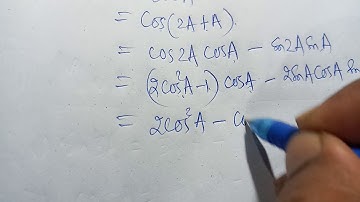 = Cos(2A+A)
= cos2A cosA - sin2A sinA
= (2cos²A-1) cosA - 2sinA cosA
= 2cos²A -